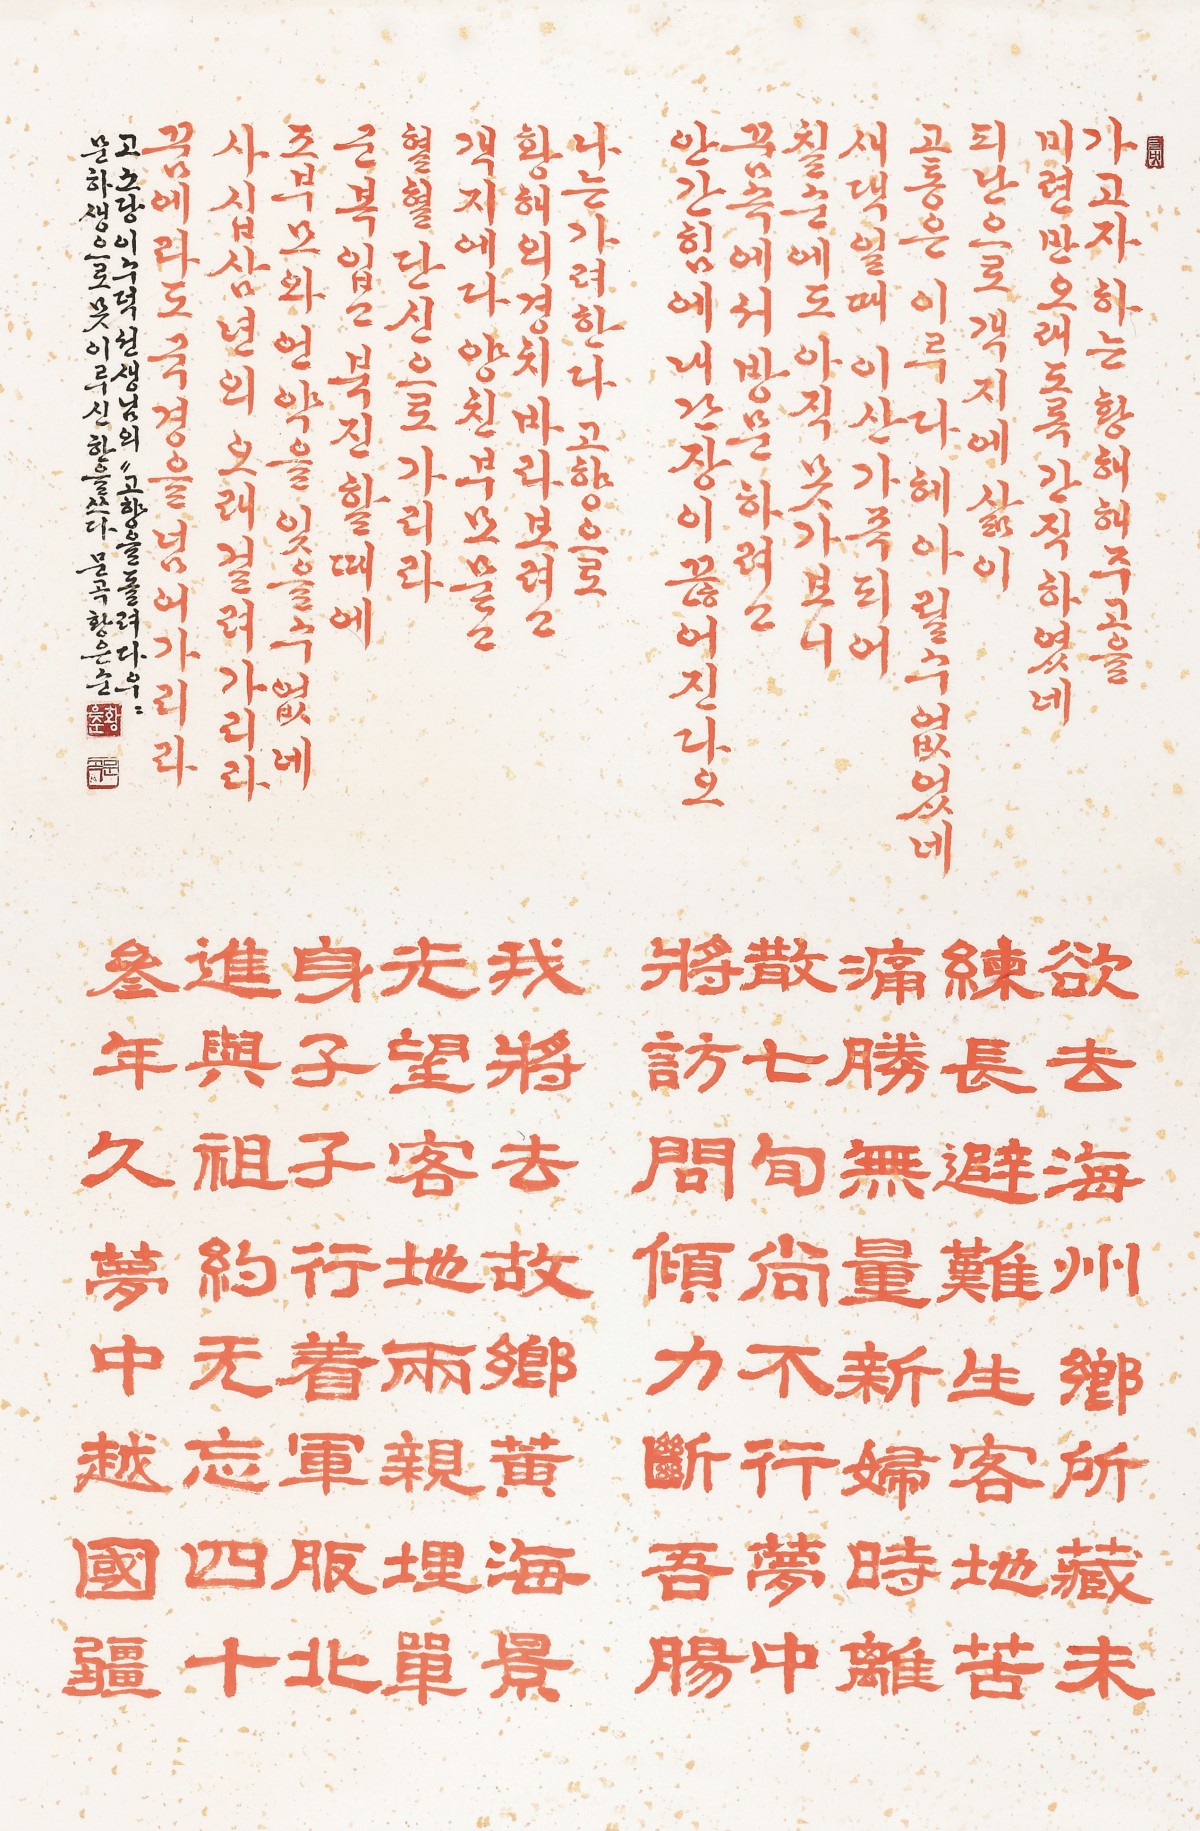 가고자 하는 황해 해주 고을
미련만 오래도록 간직하였네
피난으로 객지에 삶이
고통은 이루 다 헤아릴 수 없었네
새댁일때 이산가족 되어
칠순에도 아직 못가보니
꿈속에서 방문하려고
안간힘에 내 간장이 끊어진다오
나는 가려한다 고향으로
황해의 경치 바라보려고
객지에다 양친부모 묻고
혈혈단신으로 가리라
군복 입고 북진할 때에
조부모와 언약을 잊을 수 없네
사십삼년의 오래 걸려 가리라
꿈에라도 국경을 넘어가리라
고 소당 이수덕 선생님의 "고향을 돌려다우"
문하생으로 못 이루신 한을 쓰다 문곡 황은순
欲去海州鄉所藏未
練長避難生客地苦
痛勝無量新婦時離
散七旬尚不行夢中
將訪問傾力斷吾腸
我將去故鄉黃海景
光望客地兩親埋單
身孑孑行着軍服北
進與祖約无忘四十
叄年久夢中越國疆